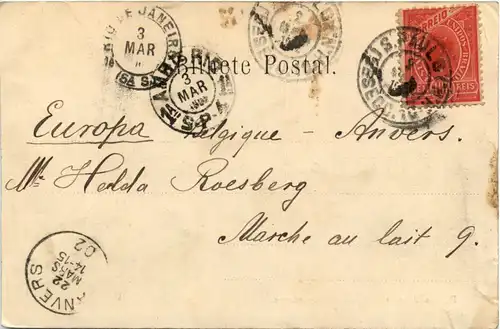 RIO DE JANEIRO
3
MAR
(6A S)
AMB
3
MAR
S.P.
Bilhete Postal.
S. PAULO
CORREIO
REIS
Europa Belgique - Anvers.
Mlle Hedda Roesberg
Marche au lait 9.
ANVERS
22
MARS
14-15
02